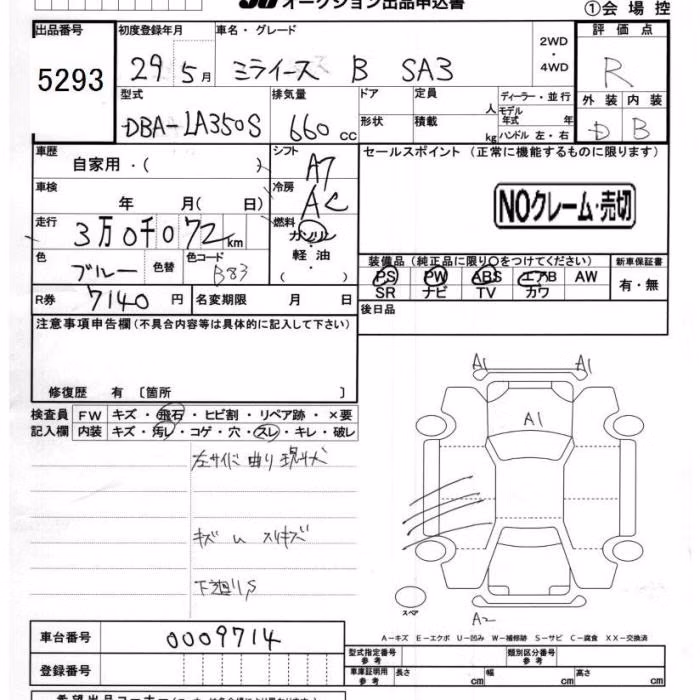 オークション出品申込書
①会場控
出品番号 初度登録年月 車名・グレード 評価点
5293 29年5月 ミライース B SA3 2WD・4WD R
型式 排気量 ドア 定員 ディーラー・並行 外装 内装
DBA-LA350S 660cc 形状 積載 人 kg モデル年式 年 ハンドル 左・右 D B
車歴 自家用・( ) シフト A7 セールスポイント (正常に機能するものに限ります)
車検 年 月( 日) 冷房 AC NOクレーム・売切
走行 3万0千072km 燃料 ガソリン・軽油・( )
色 ブルー 色替 色コード B83
装備品(純正品に限り○をつけてください) 新車保証書
PS PW ABS エアB AW 有・無
SR ナビ TV カワ
R券 7140円 名変期限 月 日 後日品
注意事項申告欄(不具合内容等は具体的に記入して下さい)
修復歴 有 〔箇所 〕
検査員記入欄 FW キズ・飛石・ヒビ割・リペア跡・×要
内装 キズ・汚レ・コゲ・穴・スレ・キレ・破レ
左サイド 曲り 現状
キズ ム スリキズ
下廻りS
A1 A1
A1
A2
スペア
A−キズ E−エクボ U−凹み W−補修跡 S−サビ C−腐食 XX−交換済
車台番号 0009714
登録番号
型式指定番号 参考 類別区分番号 参考
車庫証明用 参考 長さ cm 幅 cm 高さ cm
希望出品コーナー